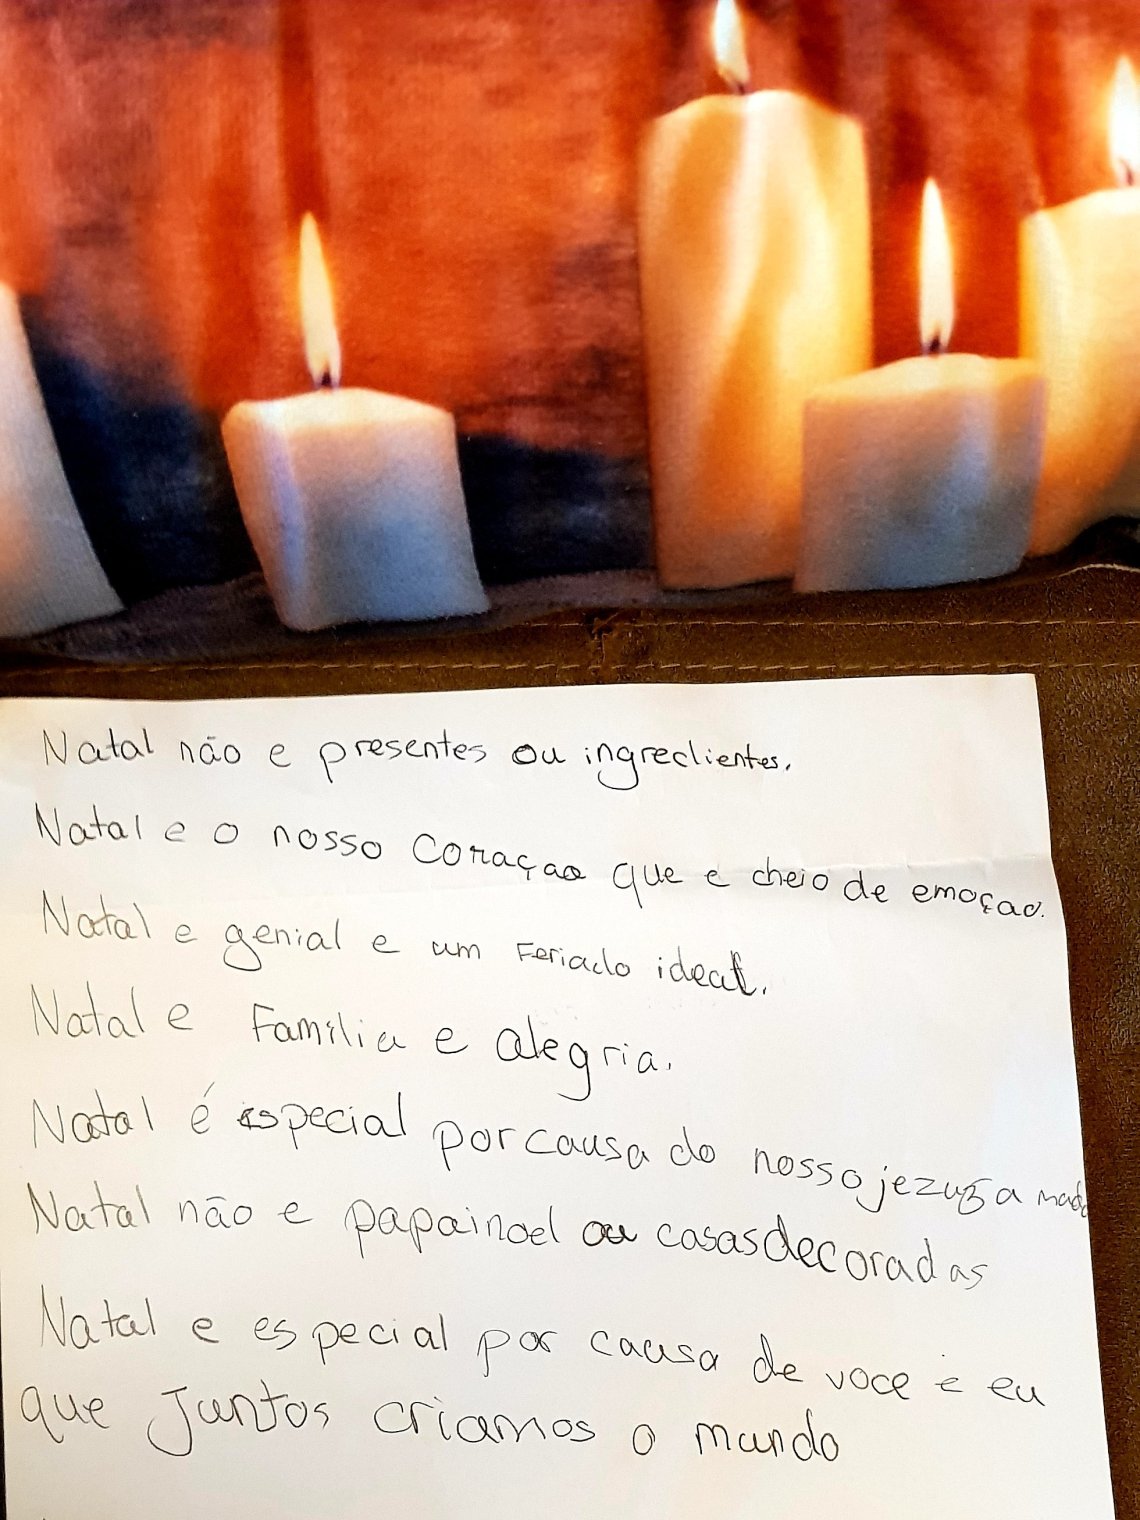 Natal não e presentes ou ingredientes.
Natal e o nosso Coraçao que e cheio de emoçao.
Natal e genial e um Feriado ideal.
Natal e Família e alegria.
Natal é especial por causa do nosso jezus a mado
Natal não e papainoel ou casas decoradas
Natal e especial por causa de voce e eu
que Juntos criamos o mundo